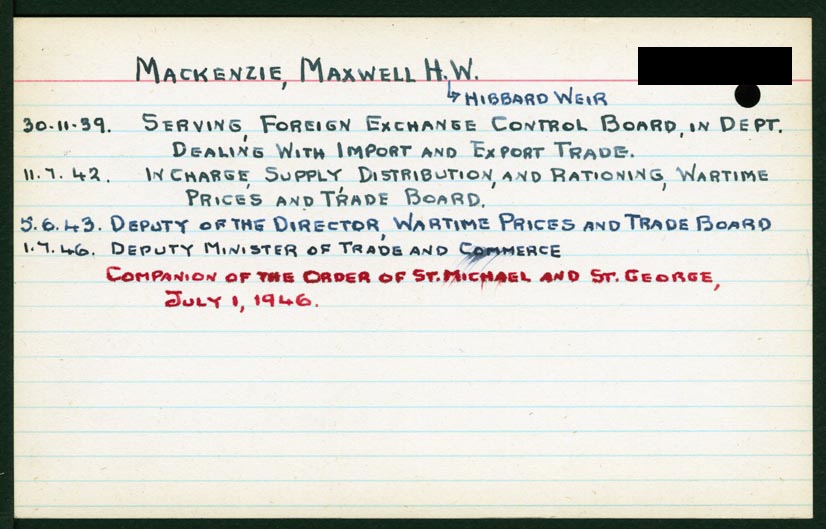 MACKENZIE, MAXWELL H.W.
↳ HIBBARD WEIR
30.11.39. SERVING, FOREIGN EXCHANGE CONTROL BOARD, IN DEPT.
DEALING WITH IMPORT AND EXPORT TRADE.
11.7.42. IN CHARGE, SUPPLY DISTRIBUTION, AND RATIONING, WARTIME
PRICES AND TRADE BOARD.
5.6.43. DEPUTY OF THE DIRECTOR, WARTIME PRICES AND TRADE BOARD
1.7.46. DEPUTY MINISTER OF TRADE AND COMMERCE
COMPANION OF THE ORDER OF ST. MICHAEL AND ST. GEORGE,
JULY 1, 1946.